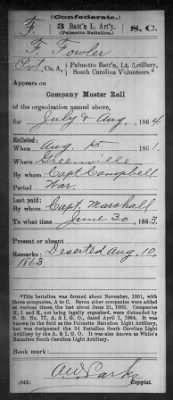 (Confederate.)
F. 3 Batt'n L. Art'y. S. C.
(Palmetto Battalion.)
F. Fowler
Pvt., Co. A, Palmetto Batt'n, Lt. Artillery,
South Carolina Volunteers.*
Appears on
Company Muster Roll
of the organization named above,
for July & Aug., 1864
Enlisted:
When Aug. 1861.
Where Greenville
By whom Capt. Campbell
Period War.
Last paid:
By whom Capt. Marshall
To what time June 30, 1863.
Present or absent
Remarks: Deserted Aug. 10,
1863.
*This battalion was formed about November, 1861, with
three companies, A to C. Seven other companies were added
at various times, the last about June 21, 1862. Companies
H, I and K, not being legally organized, were disbanded by
S. O. No. 77, A. & I. G. O., dated April 1, 1864. It was
known in the field as the Palmetto Battalion Light Artillery,
but was designated the 3d Battalion South Carolina Light
Artillery by the A. & I. G. O. It was also known as White's
Battalion South Carolina Light Artillery.
Book mark:
(642)
Copyist.